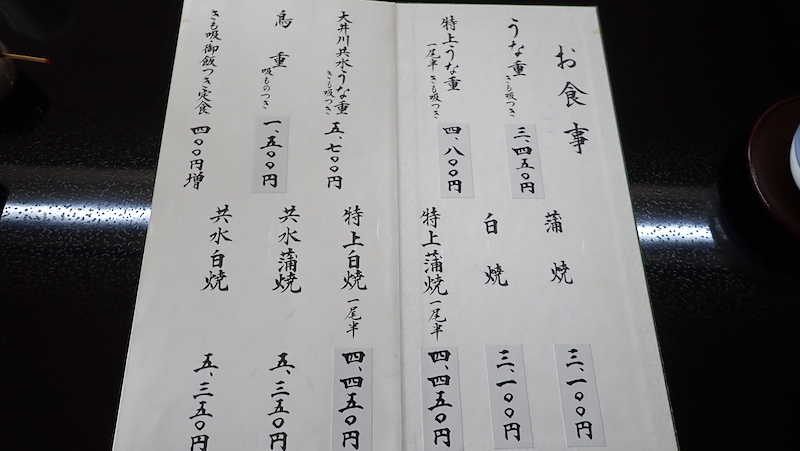 お食事
うな重 きも吸つき 三、四五〇円
特上うな重 一尾半 きも吸つき 四、八〇〇円
大井川共水うな重 きも吸つき 五、七〇〇円
鳥重 吸ものつき 一、五〇〇円
きも吸・御飯つき定食 四〇〇円増
蒲焼 三、一〇〇円
白焼 三、一〇〇円
特上蒲焼 一尾半 四、四五〇円
特上白焼 一尾半 四、四五〇円
共水蒲焼 五、三五〇円
共水白焼 五、三五〇円